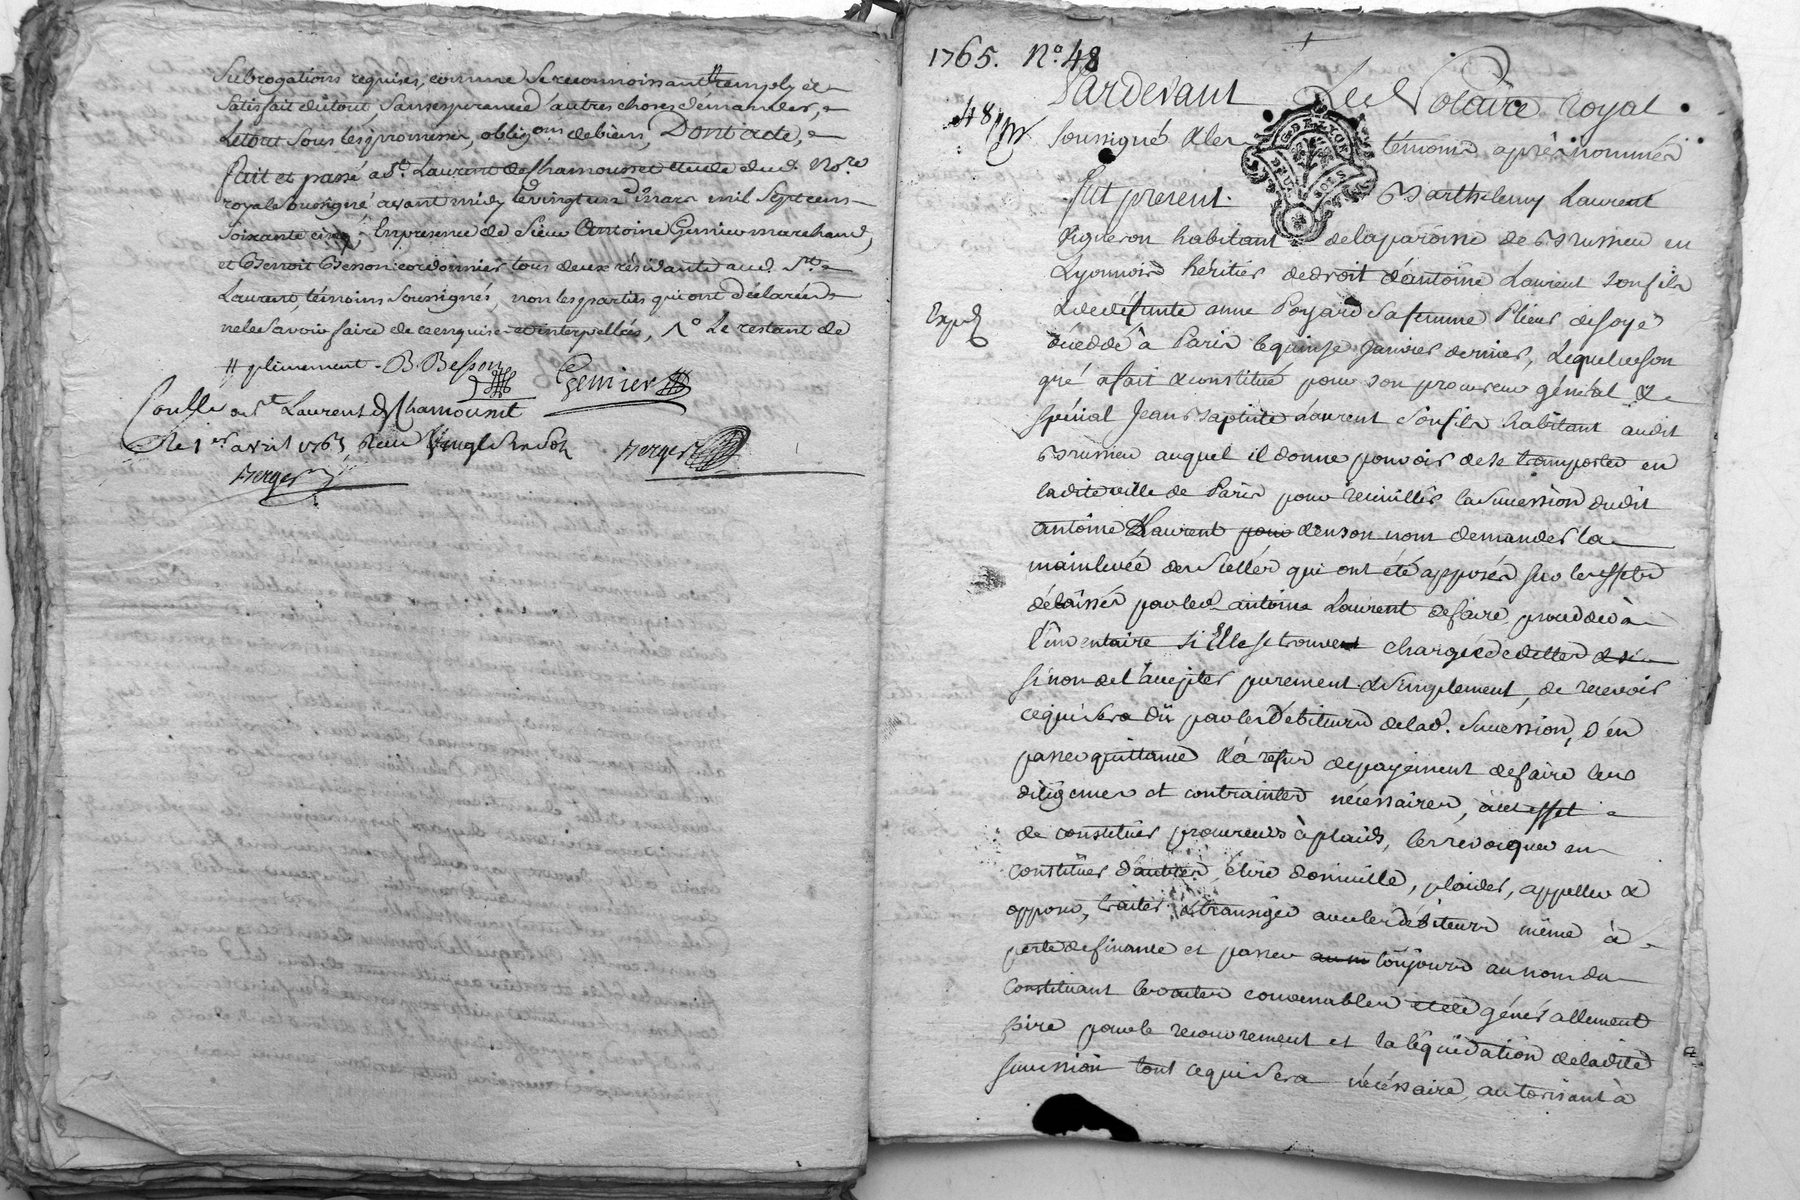 Subrogations requises, comme se reconnoissant # remply et
satisfait du tout, sans esperance d'autres choses demander,
Le tout sous les promesses, obligons de biens, Dont acte,
fait et passé a St. Laurent de Chamousset etude dud. Nore
royal soussigné avant midy le vingt un mars mil sept cens
soixante cinq En presence de sieur Antoine Genier marchand,
et Benoit Besson cordonnier tous deux résidants aud. St.
Laurent, témoins soussignés, non les parties qui ont déclarées
ne le savoir faire de ce enquises et interpellées, 1° Le restant de
# plinement. B. Besson Genier
Conllé a St Laurent de Chamousset
Le 1er avril 1765 Reçu vingt six sols Berger
Berger
1765. N° 48
48
Pardevant Le Notaire royal
soussigné & les témoins après nommés
fut present Barthelemy Laurent
Vigneron habitant de la paroisse de Brussieu en
Lyonnois héritier de droit d'antoine Laurent son fils
& de défunte anne Poyard sa femme Plieur de soye
décédé à Paris le quinze Janvier dernier, Lequel de son
gré a fait & constitué pour son procureur général &
spécial Jean Baptiste Laurent son fils habitant audit
Brussieu auquel il donne pouvoir de se transporter en
ladite ville de Paris pour recueillir la succession dudit
antoine Laurent pour d'en son nom demander la
mainlevée des scellés qui ont été apposés sur les effets
délaissés par led. antoine Laurent de faire procéder à
l'inventaire si Elle se trouve chargée de dettes
sinon de l'accepter purement & simplement, de recevoir
ce qui sera dû par les débiteurs de lad. succession, d'en
passer quittance & à refus de payement de faire les
diligences et contraintes nécessaires, à cet effet
de constituer procureurs à plaids, les révoquer en
constituer d'autres élire domicille, plaider, appeller &
opposer, traiter & transiger avec les débiteurs même à
perte de finance et passer toujours au nom du
constituant les actes convenables et de généralement
faire pour le recouvrement et la liquidation de ladite
succession tout ce qui sera nécéssaire, autorisant à
Expé
G DE LYON
DEUX SOLS